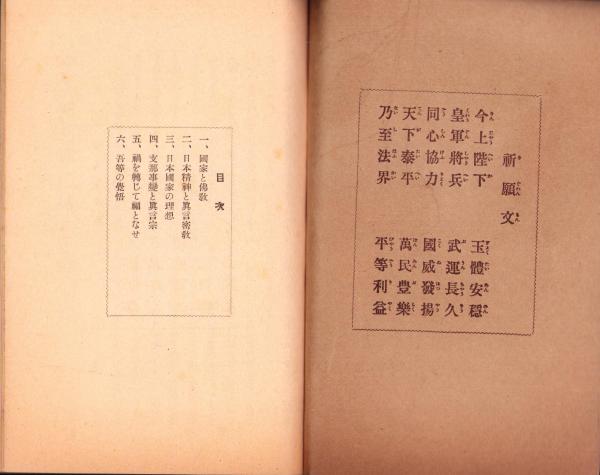 祈願文
今上陛下 玉體安穩
皇軍將兵 武運長久
同心協力 國威發揚
天下泰平 萬民豊樂
乃至法界 平等利益
目次
一、國家と佛敎
二、日本精神と眞言密敎
三、日本國家の理想
四、支那事變と眞言宗
五、禍を轉じて福となせ
六、吾等の覺悟